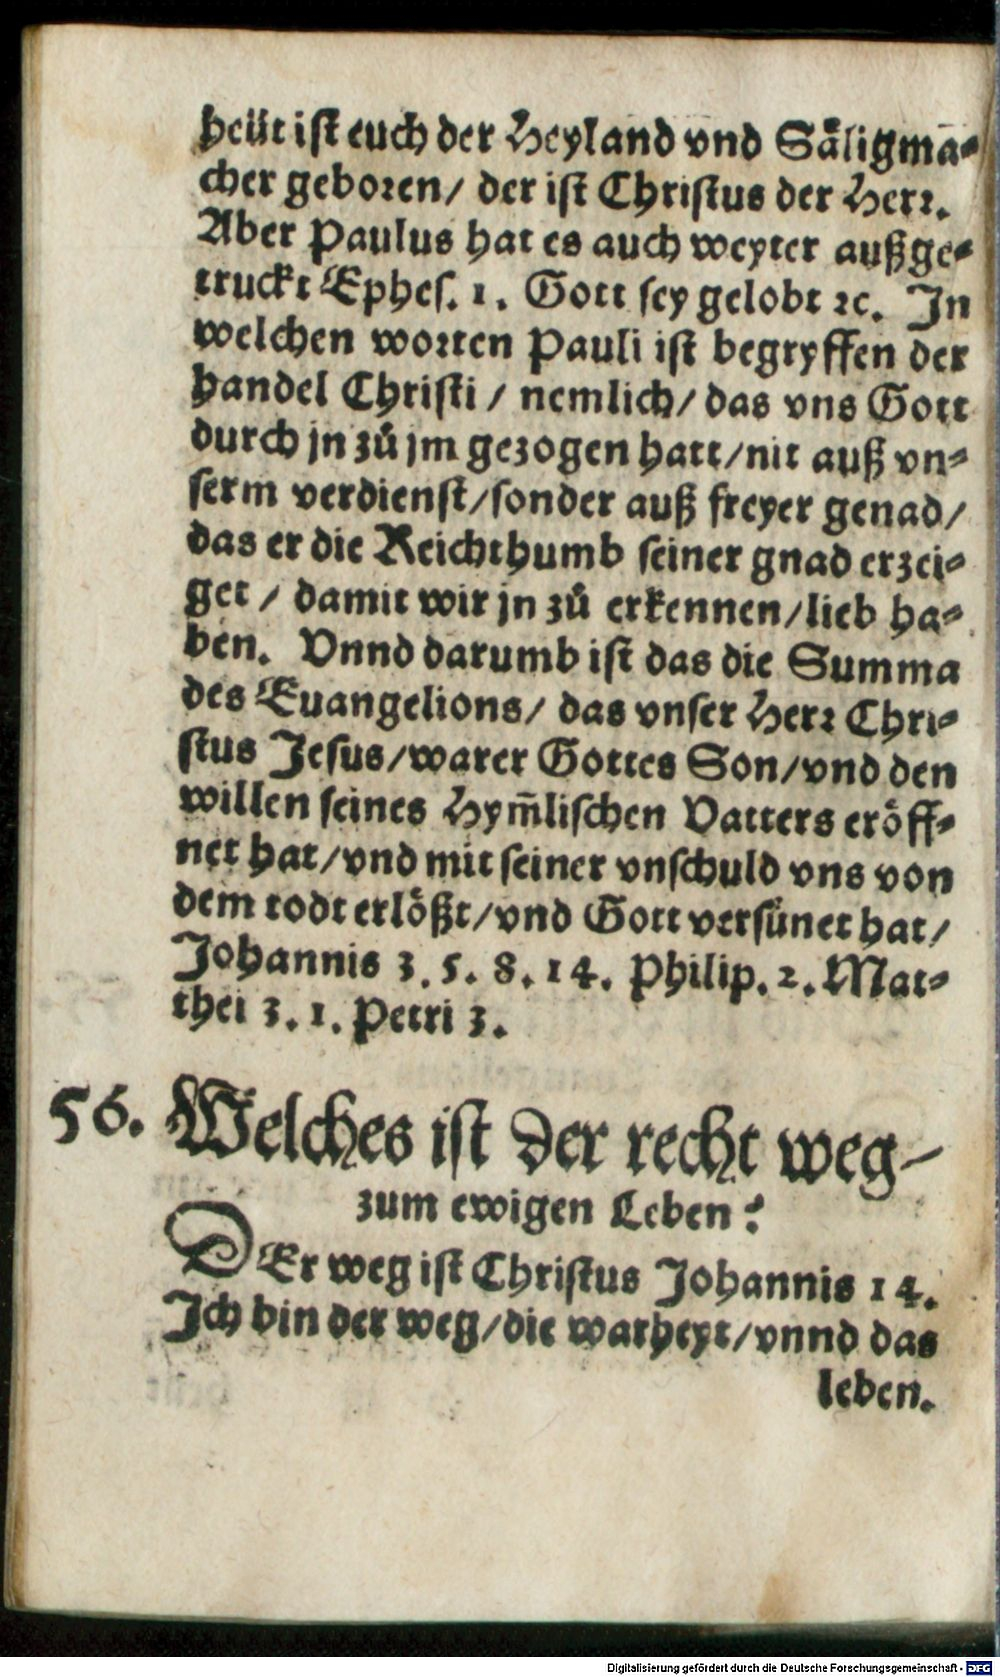 heüt ist euch der Heyland vnd Säligma-
cher geboren/ der ist Christus der Herr.
Aber Paulus hat es auch weyter außge-
truckt Ephes. 1. Gott sey gelobt ꝛc. In
welchen worten Pauli ist begryffen der
handel Christi / nemlich/ das vns Gott
durch jn zů jm gezogen hatt/nit auß vn-
serm verdienst/sonder auß freyer genad/
das er die Reichthumb seiner gnad erzei-
get / damit wir jn zů erkennen/lieb ha-
ben. Vnnd darumb ist das die Summa
des Euangelions/ das vnser Herr Chri-
stus Jesus/warer Gottes Son/vnd den
willen seines Hym̄lischen Vatters eröff-
net hat/vnd mit seiner vnschuld vns von
dem todt erlößt/vnd Gott versünet hat/
Johannis 3. 5. 8. 14. Philip. 2. Mat-
thei 3. 1. Petri 3.
56. Welches ist der recht weg
zum ewigen Leben?
DEr weg ist Christus Johannis 14.
Ich bin der weg/die warheyt/vnnd das
leben.
Digitalisierung gefördert durch die Deutsche Forschungsgemeinschaft - DFG